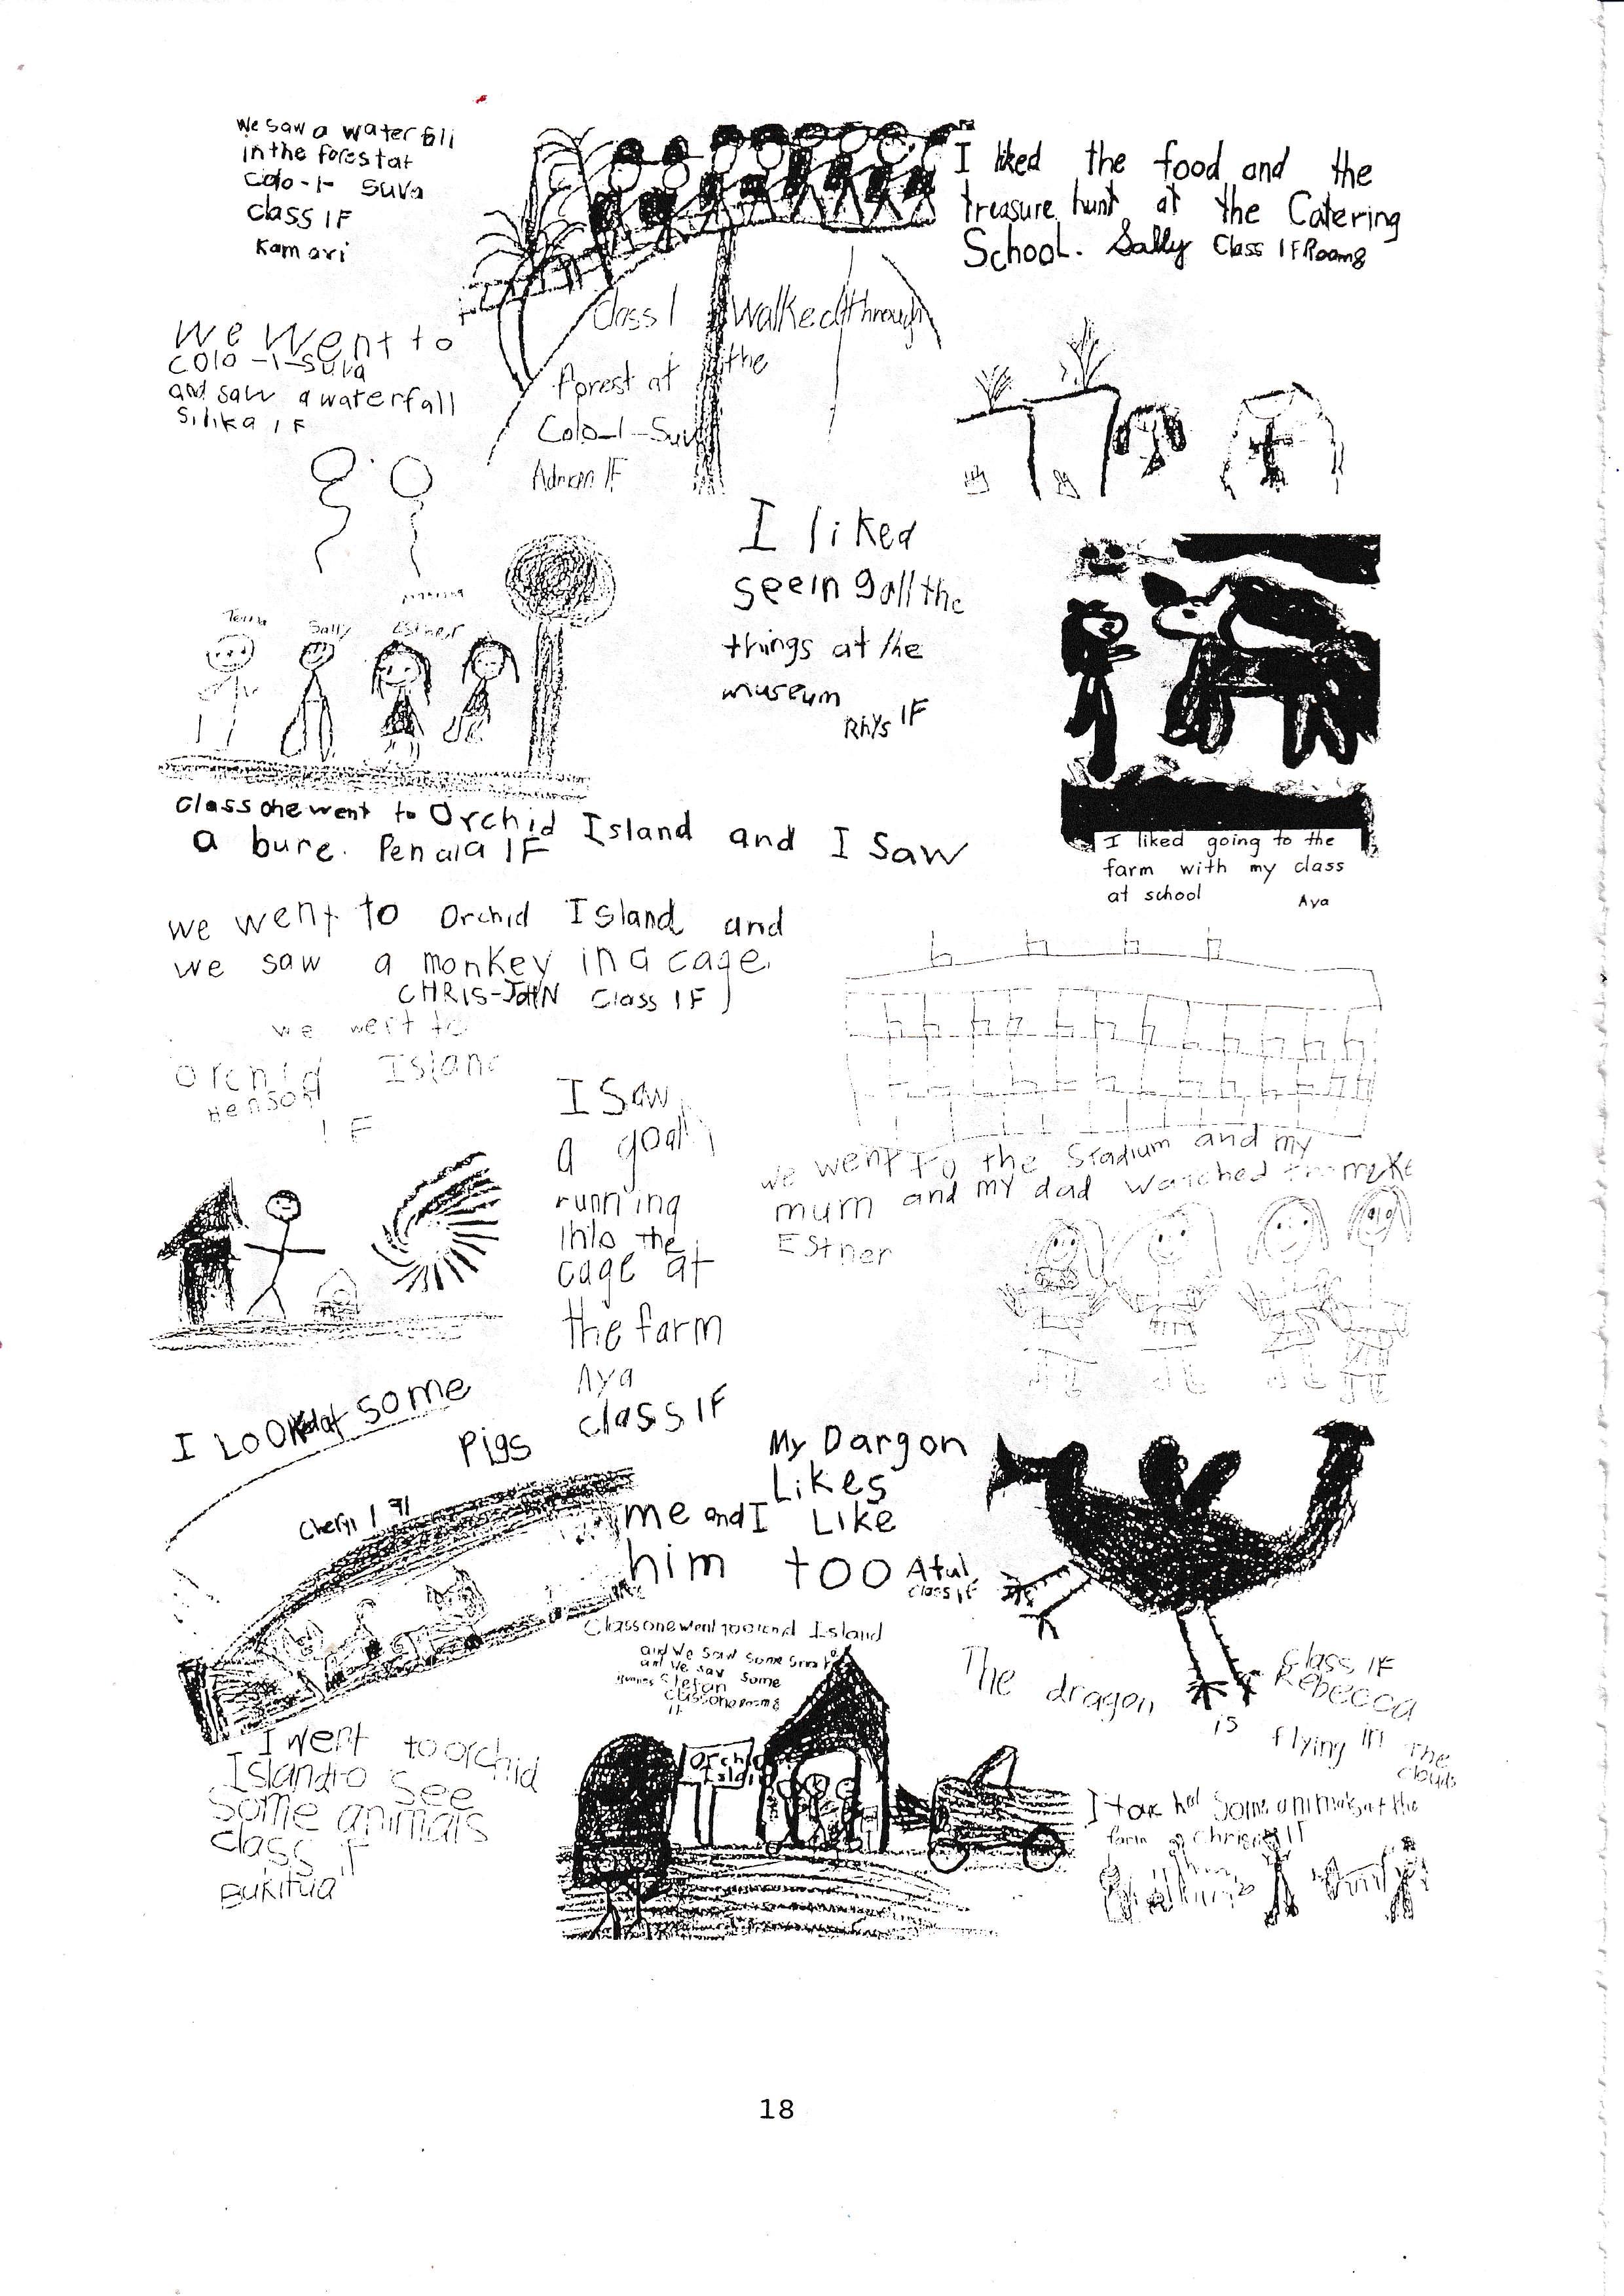 We saw a waterfall
in the forest at
Colo-I- Suva
Class 1F
Kamari
I liked the food and the
treasure hunt at the Catering
School. Sally Class 1F Room8
We went to
Colo-I-Suva
and saw a waterfall
Silika 1F
Class 1 walked through
the
forest at
Colo-I-Suva
Adrian 1F
I liked
seeing all the
things at the
museum
Rhys 1F
Sally
Esther
I liked going to the
farm with my class
at school
Aya
Class one went to Orchid Island and I saw
a bure. Penaia 1F
we went to Orchid Island and
we saw a monkey in a cage.
CHRIS-JOHN Class 1F
we went to
Orchid Island
Henson
1F
I Saw
a goat
running
into the
cage at
the farm
Aya
class 1F
we went to the Stadium and my
mum and my dad watched
Esther
I Looked at some
Pigs
Cheryl
My Dargon
Likes
me and I Like
him too Atul
Class 1F
Class one went to Orchid Island
and we saw some
and we saw some
Stefan
Class one Room 8
Orchid
Island
The dragon is flying in the clouds
Class 1F
Rebecca
I went to orchid
Island to See
Some animals
class 1F
Bukitua
some animals at the
farm
18